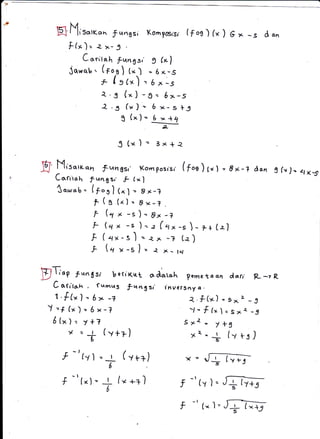 5 Misalkan fungsi Komposisi (fog)(x) 6x -5 dan
f(x) = 2x-9.
Carilah fungsi g(x)
Jawab: (fog)(x) = 6x-5
f (g(x) = 6x-5
2.g(x) - 9 = 6x-5
2.g(x) = 6x-5+9
g(x) = 6x+4
2
g(x) = 3x+2
6 Misalkan fungsi Komposisi (fog)(x) = 8x-7 dan g(x) = 4x-5
Carilah fungsi f(x)
Jawab = (fog)(x) = 8x-7
f (g(x) = 8x-7.
f (4x-5) = 8x-7
f (4x-5) = 2(4x-5)-7+(2)
f (4x-5) = 2x-7 (2)
f (4x-5) = 2x-14
7 Tiap fungsi berikut adalah pemetaan dari R→R
Carilah. rumus fungsi inversnya.
1. f(x) = 6x-7
y = f(x) = 6x-7
6(x) = y+7
x = 1/6 (y+7)
f⁻¹(y) = 1/6 (y+7)
f⁻¹(x) = 1/6 (x+7)
2. f(x) = 5x²-9
y = f(x) = 5x²-9
5x² = y+9
x² = 1/5 (y+9)
x = √1/5 (y+9
f⁻¹(y) = √1/5 (y+9
f⁻¹(x) = √1/5 (x+9